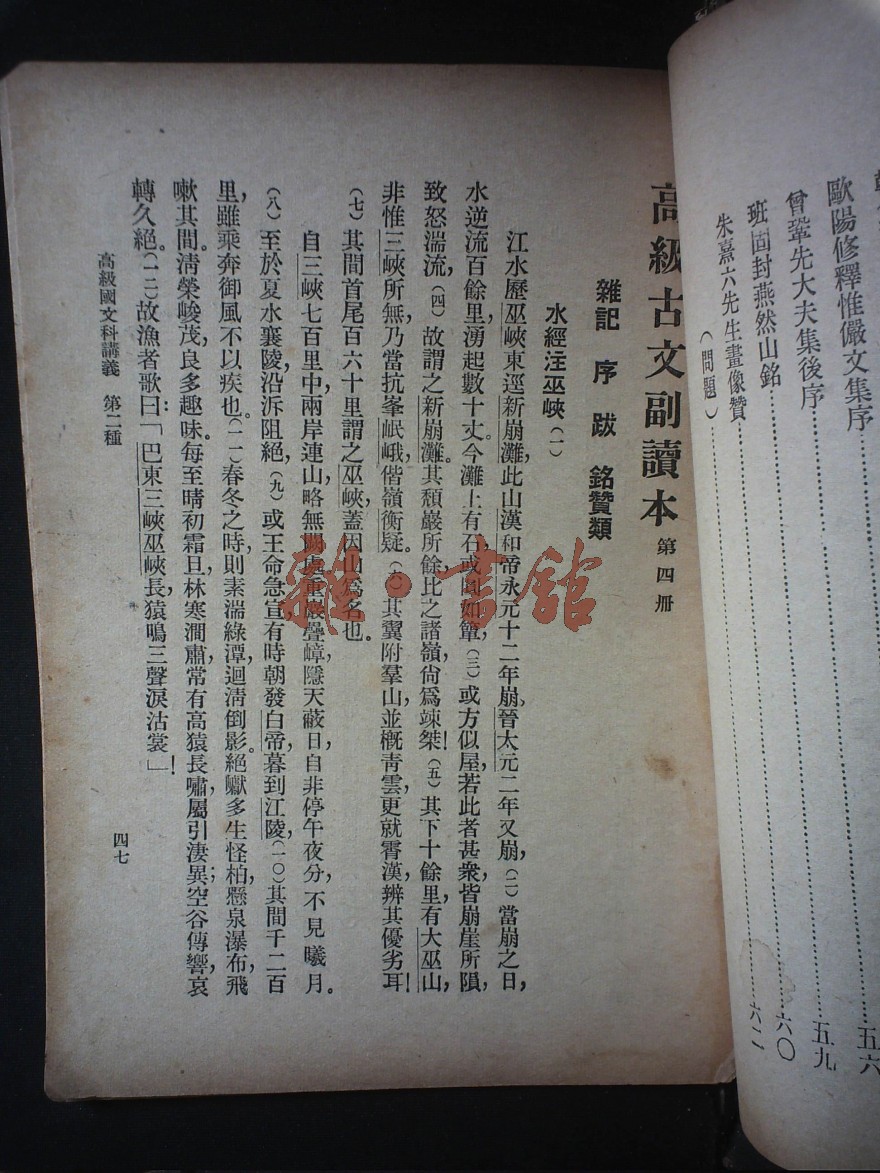 歐陽修釋惟儼文集序……五六
曾鞏先大夫集後序……五九
班固封燕然山銘……六〇
朱熹六先生畫像贊……六二
（問題）
高級古文副讀本 第四冊
雜記 序 跋 銘贊類
水經注巫峽（一）
江水歷巫峽東逕新崩灘，此山漢和帝永元十二年崩，晉太元二年又崩，（二）當崩之日，
水逆流百餘里，湧起數十丈。今灘上有石，或圓如簞，（三）或方似屋，若此者甚衆，皆崩崖所隕，
致怒湍流，（四）故謂之新崩灘。其頹巖所餘，比之諸嶺，尙爲竦桀！（五）其下十餘里有大巫山，
非惟三峽所無，乃當抗峯岷峨，偕嶺衡疑。（六）其翼附羣山，並槪靑雲，更就霄漢辨其優劣耳！
（七）其間首尾百六十里，謂之巫峽，蓋因山爲名也。
自三峽七百里中，兩岸連山，略無闕處，重巖疊嶂，隱天蔽日，自非停午夜分，不見曦月。
（八）至於夏水襄陵，沿泝阻絕，（九）或王命急宣，有時朝發白帝，暮到江陵，（一〇）其間千二百
里，雖乘奔御風，不以疾也。（一一）春冬之時，則素湍綠潭，迴淸倒影。絕巘多生怪柏，懸泉瀑布，飛
嗽其間。淸榮峻茂，良多趣味。每至晴初霜旦，林寒澗肅，常有高猿長嘯，屬引淒異；空谷傳響，哀
轉久絕。（一二）故漁者歌曰：「巴東三峽巫峽長，猿鳴三聲淚沾裳」！
高級國文科講義 第二種
四七
雜·書館